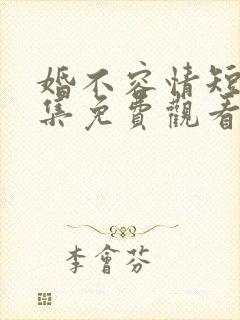 婚不容情短
集免費觀看
李會芬